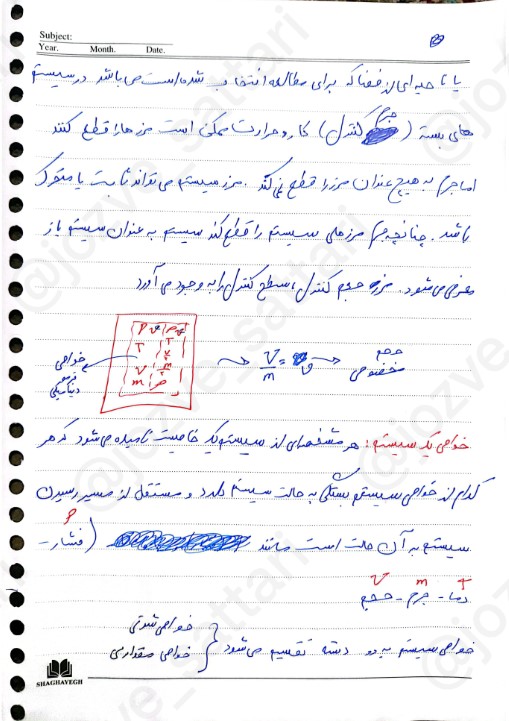 Subject:
Year. Month. Date.
یا ناحیه‌ای از فضا که برای مطالعه انتخاب شده است می باشد در سیستم
های بسته (جرم کنترل) کار و حرارت ممکن است مرزها را قطع کنند
اما جرم به هیچ عنوان مرز را قطع نمی کند. مرز سیستم می تواند ثابت یا متحرک
باشد. چنانچه جرم مرزهای سیستم را قطع کند سیستم به عنوان سیستم باز
معرفی می شود. مرز حجم کنترل، سطح کنترل را به وجود می آورد
P
T T
V
m
خواص
ترمو
دینامیکی
V/m = v
حجم
مخصوص
خواص یک سیستم: هر مشخصه‌ای از سیستم یک خاصیت نامیده می شود که هر
کدام از خواص سیستم بستگی به حالت سیستم دارد و مستقل از مسیر رسیدن
سیستم به آن حالت است مانند (فشار -
P
دما - جرم - حجم
V m T
خواص سیستم به دو دسته تقسیم می شود { خواص شدتی
خواص مقداری
SHAGHAVEGH
@jozve_sattari